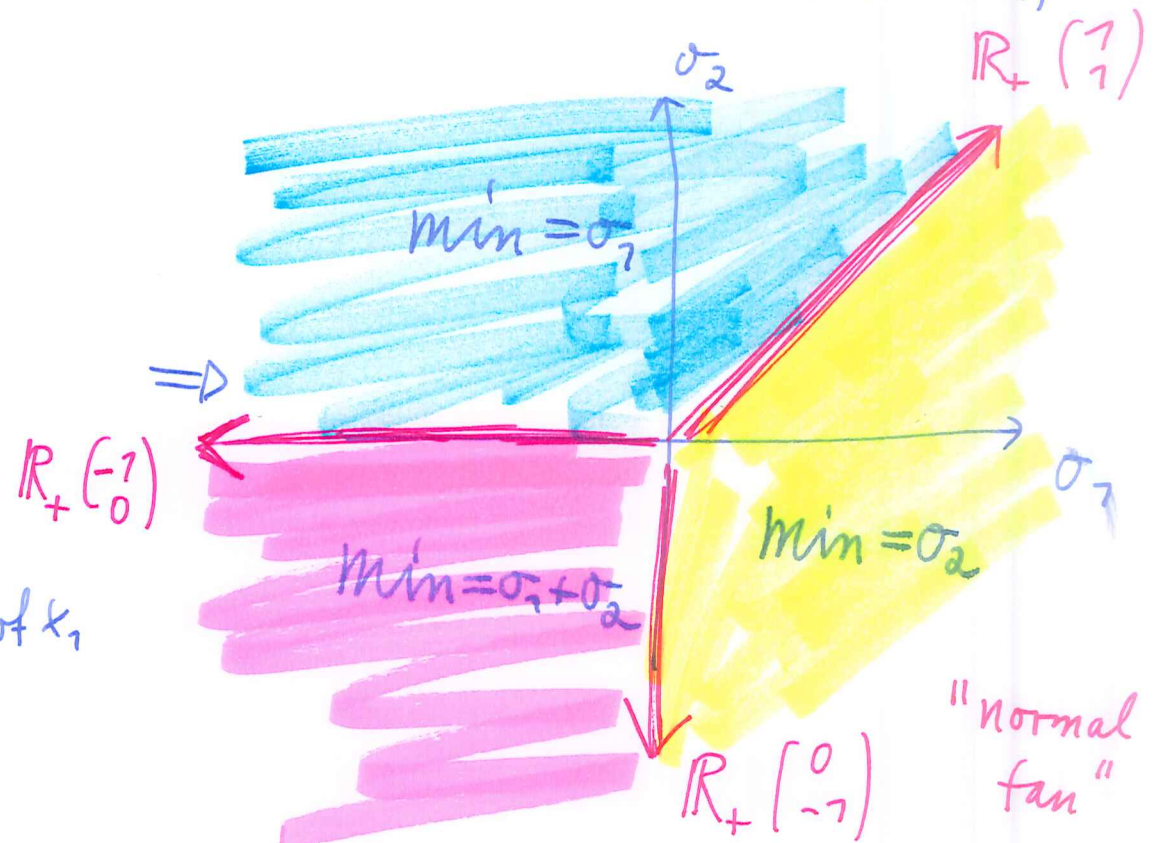 σ₂
ℝ₊ (1 1)
min = σ₁
⇒
ℝ₊ (-1 0)
σ₁
min = σ₂
min = σ₁ + σ₂
of x₁
"normal
fan"
ℝ₊ (0 -1)